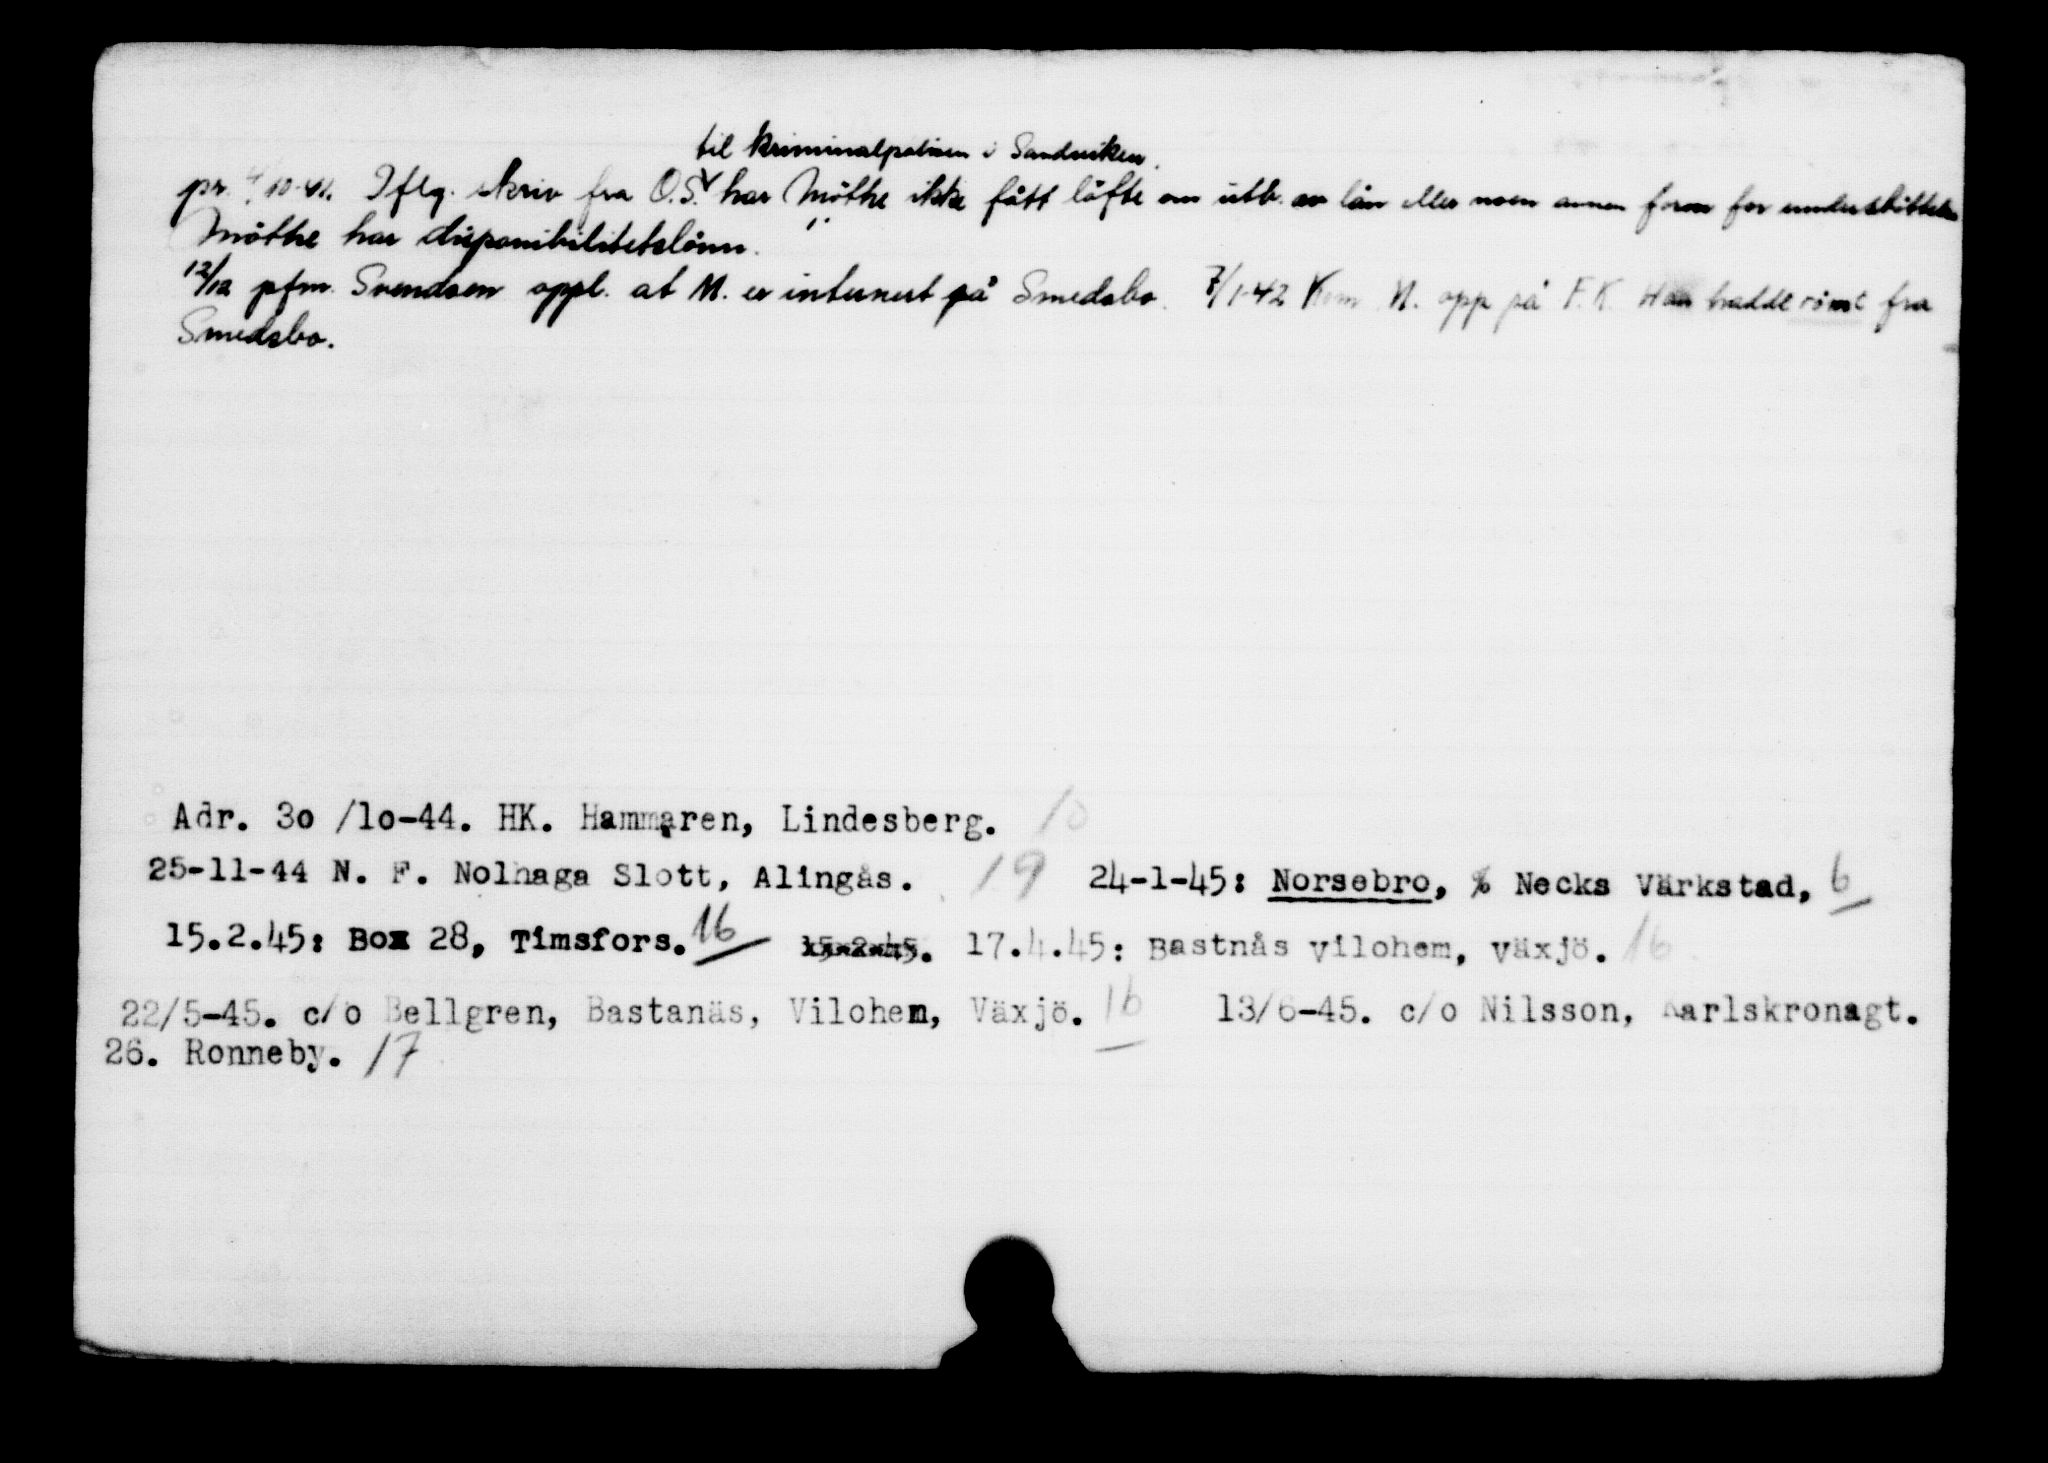 til kriminalpolisen i Sandviken.
pr. 4/10-41. Iflg. skriv fra O.S. har Möthe ikke fått löfte om utb. av lån eller noen annen form for understöttelse
Möthe har disponibilitetslönn.
12/12 pfm. Svendsen oppl. at M. er internert på Smedsbo. 7/1-42 Kom M. opp på F.K. Han hadde römt fra
Smedsbo.
Adr. 3o /1o-44. HK. Hammaren, Lindesberg. 10
25-11-44 N. F. Nolhaga Slott, Alingås. 19 24-1-45: Norsebro, % Necks Värkstad, 6
15.2.45: Box 28, Timsfors. 16 15-2-45. 17.4.45: Bastnås vilohem, växjö. 16
22/5-45. c/o Bellgren, Bastanäs, Vilohem, Växjö. 16 13/6-45. c/o Nilsson, Karlskronagt.
26. Ronneby. 17